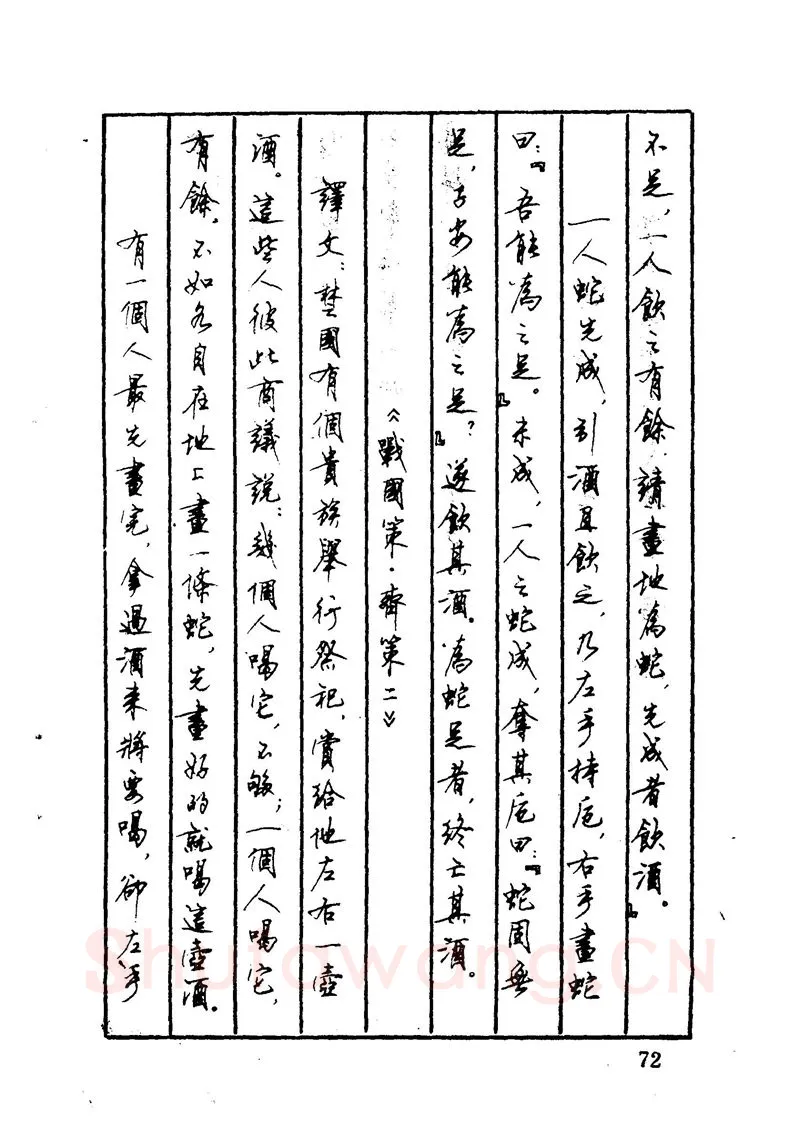 不足，一人飲之有餘。請畫地爲蛇，先成者飲酒。』
一人蛇先成，引酒且飲之，乃左手持卮，右手畫蛇
曰：『吾能爲之足。』未成，一人之蛇成，奪其卮曰：『蛇固無
足，子安能爲之足？』遂飲其酒。爲蛇足者，終亡其酒。
《戰國策·齊策二》
譯文：楚國有個貴族舉行祭祀，賞給他左右一壺
酒。這些人彼此商議説：幾個人喝它，不够；一個人喝它，
有餘。不如各自在地上畫一條蛇，先畫好的就喝這壺酒。
有一個人最先畫完，拿過酒來將要喝，卻左手
72
Shufawang.CN